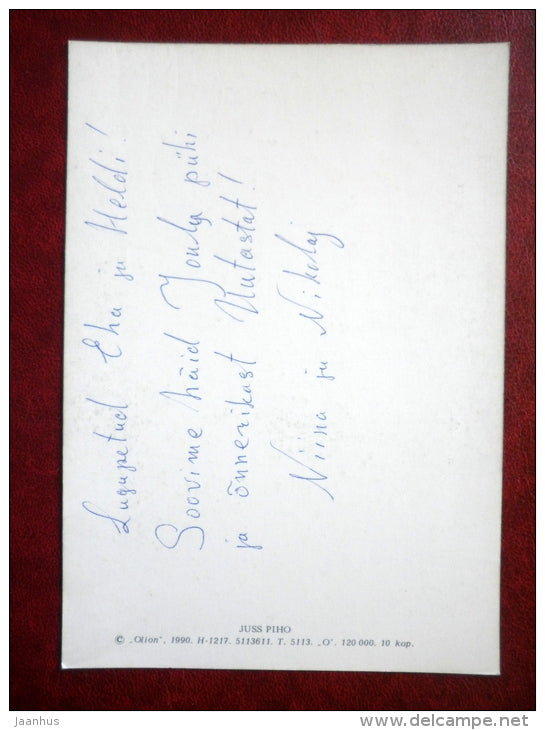 Lugupetud Eha ja Heldi!
Soovime häid Joulu pühi
ja õnnerikast Uutastat!
Niina ja Nikolaj
JUSS PIHO
© „Olion", 1990. H-1217. 5113611. T. 5113. „O". 120 000. 10 kop.
jaanhus
www.delcampe.net